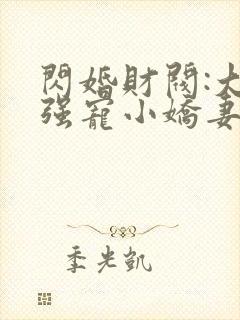 閃婚財閥:大
强寵小嬌妻
季光凱